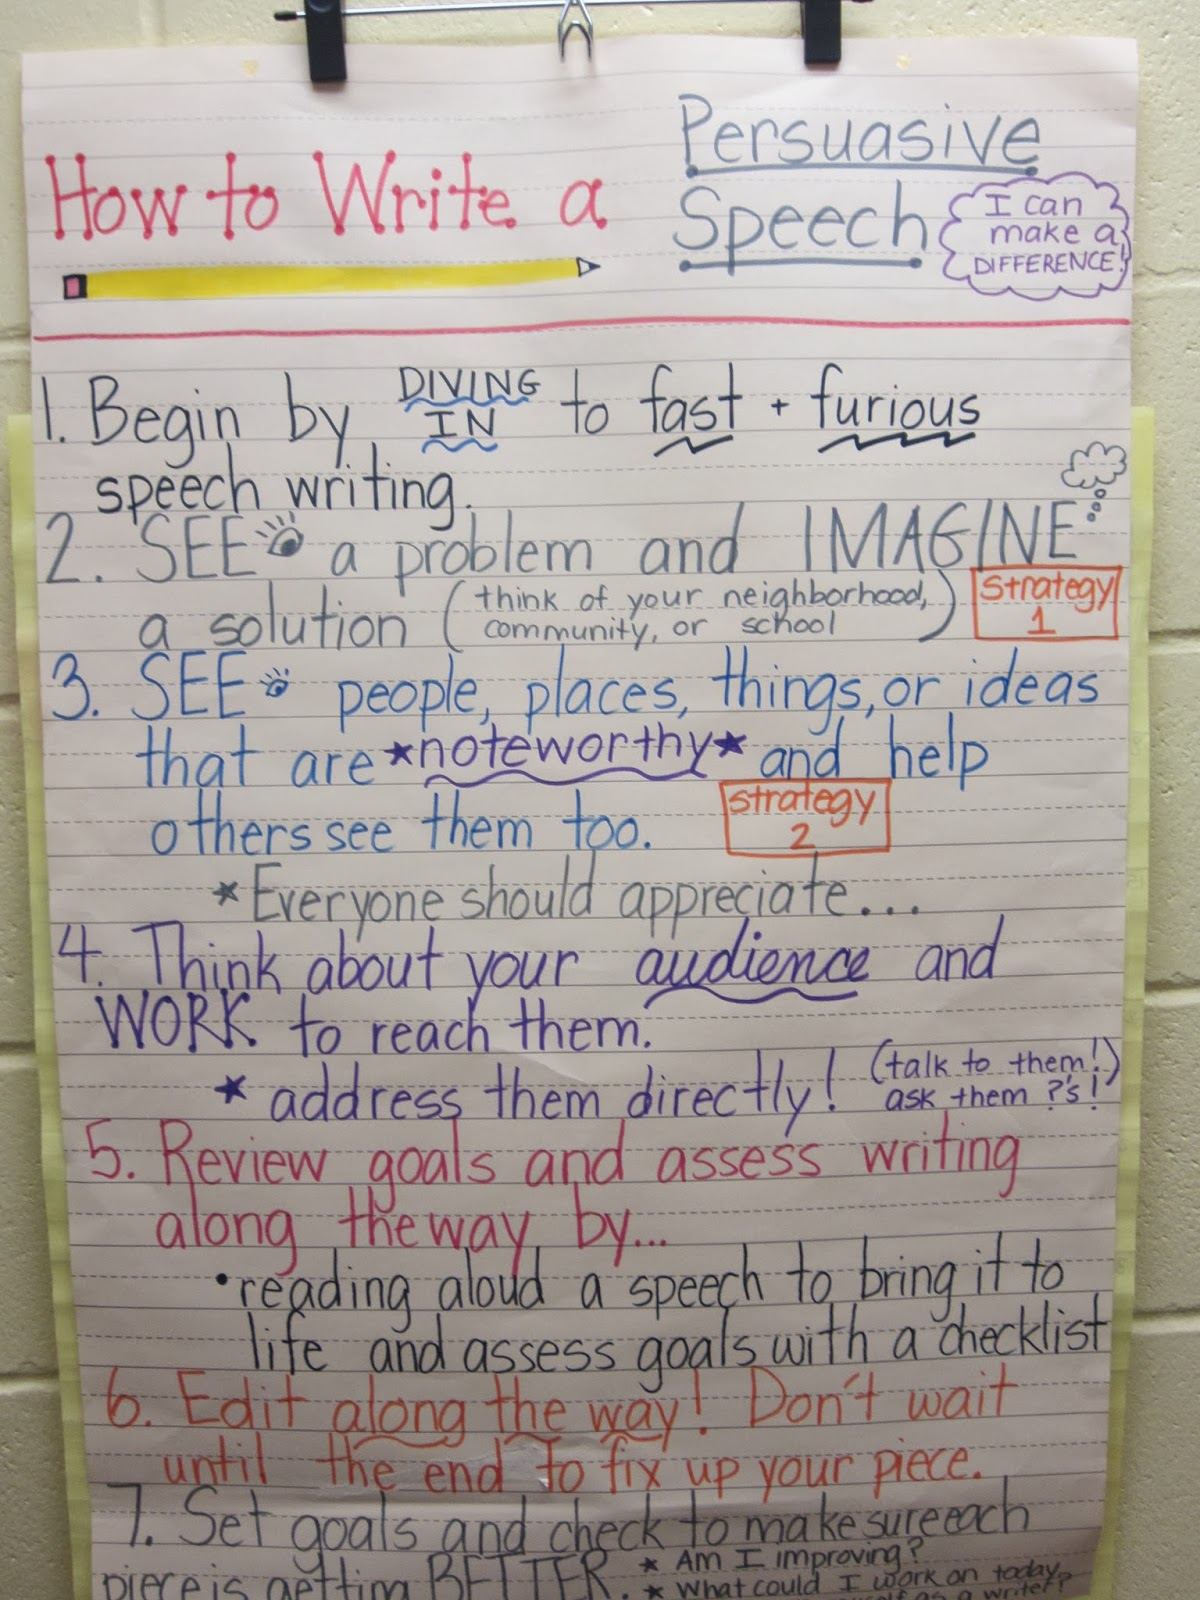 How to Write a
Persuasive
Speech
I can
make a
DIFFERENCE!
1. Begin by DIVING IN to fast + furious
speech writing.
2. SEE a problem and IMAGINE
a solution (think of your neighborhood,
community, or school)
Strategy
1
3. SEE people, places, things, or ideas
that are *noteworthy* and help
others see them too.
Strategy
2
* Everyone should appreciate...
4. Think about your audience and
WORK to reach them.
* address them directly! (talk to them!)
ask them ?'s!
5. Review goals and assess writing
along the way by...
• reading aloud a speech to bring it to
life and assess goals with a checklist
6. Edit along the way! Don't wait
until the end to fix up your piece.
7. Set goals and check to make sure each
piece is getting BETTER.
* Am I improving?
* What could I work on today
as a writer?